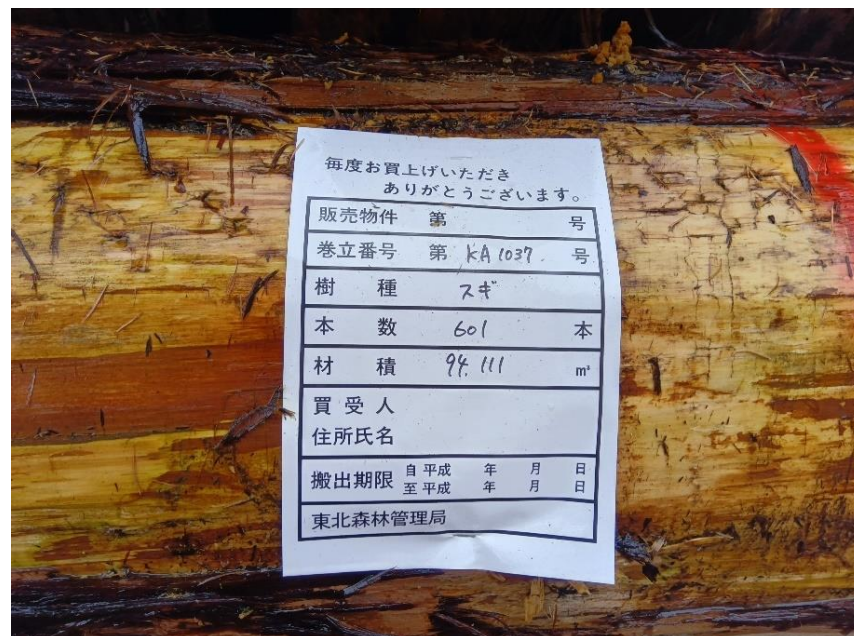 毎度お買上げいただき
ありがとうございます。
販売物件 第 号
巻立番号 第 KA1037 号
樹 種 スギ
本 数 601 本
材 積 94.111 m³
買受人
住所氏名
搬出期限 自 平成 年 月 日
至 平成 年 月 日
東北森林管理局